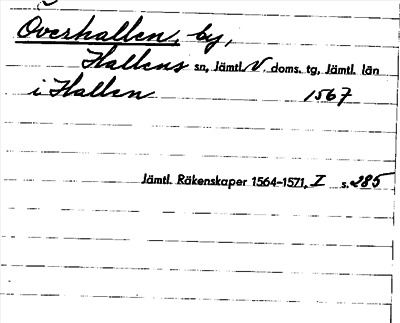 Överhallen, by,
Hallens sn, Jämtl. V. doms. tg, Jämtl. län
i Hallen 1567
Jämtl. Räkenskaper 1564–1571, I s. 285